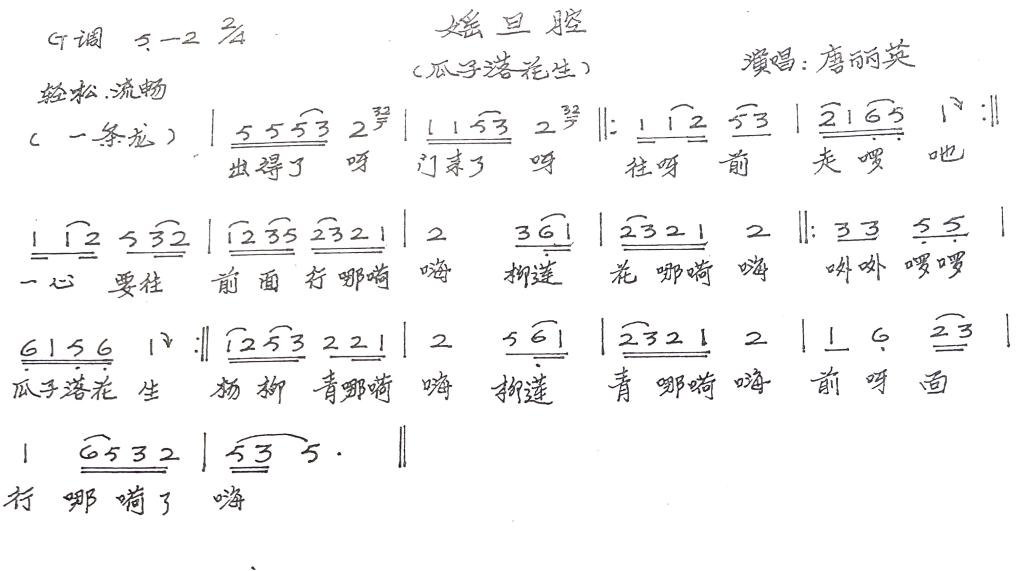 G调 5—2 2/4
媱旦腔
(瓜子落花生)
演唱:唐丽英
轻松.流畅
(一条龙) | 5 5 5 3 2 32 | 1 1 5 3 2 32 ‖: 1 1 2 5 3 | 2 1 6 5 1 :‖
出得了 呀 门来了 呀 往呀 前 走 啰 吔
1 1 2 5 3 2 | 1 2 3 5 2 3 2 1 | 2 3 6 1 | 2 3 2 1 2 ‖: 3 3 5 5 |
一心 要往 前面行哪嗬 嗨 柳莲 花哪嗬 嗨 咉咉 啰啰
6 1 5 6 1 :‖ 1 2 5 3 2 2 1 | 2 5 6 1 | 2 3 2 1 2 | 1 6 2 3 |
瓜子落花 生 杨柳 青哪嗬 嗨 柳莲 青哪嗬 嗨 前 呀 面
1 6 5 3 2 | 5 3 5 . ‖
行 哪嗬了 嗨